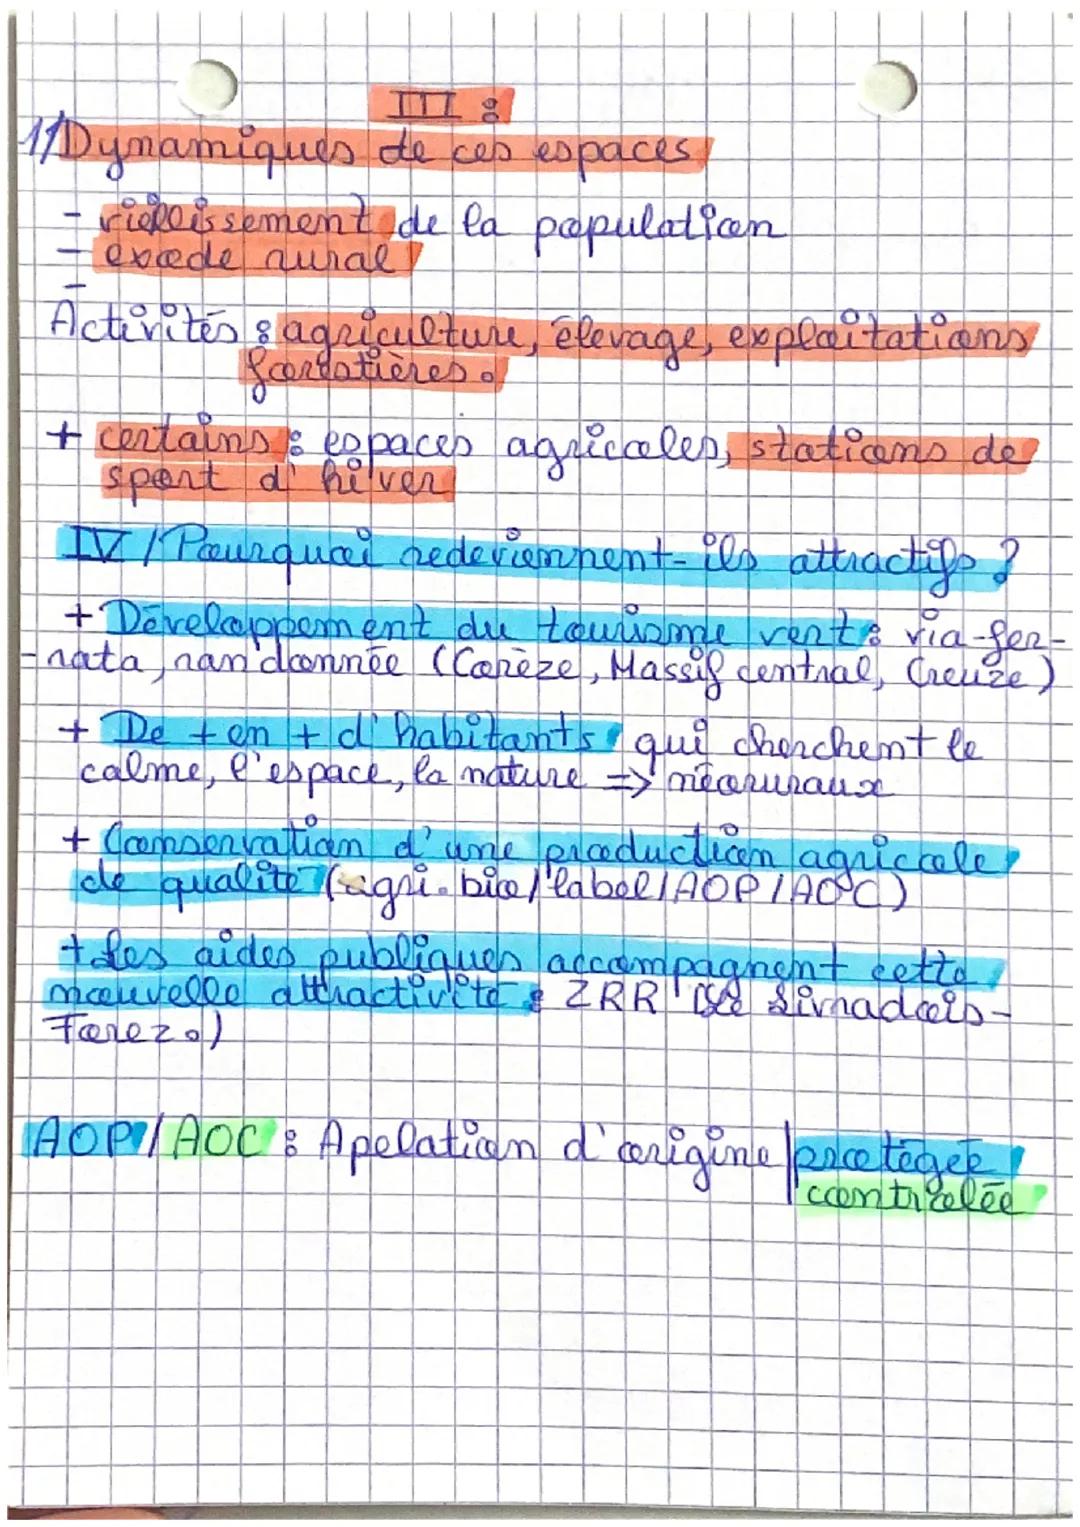 III :
1/Dynamiques de ces espaces
- vieillissement de la population
- exode rural
-
Activités : agriculture, élevage, exploitations
forestières.
+ certains : espaces agricoles, stations de
sport d'hiver
IV / Pourquoi redeviennent-ils attractifs ?
+ Développement du tourisme vert : via-fer-
-rata, randonnée (Corèze, Massif central, Creuze)
+ De + en + d'habitants qui cherchent le
calme, l'espace, la nature => néoruraux
+ Conservation d'une production agricole
de qualité (agri. bio/label/AOP/AOC)
+ Les aides publiques accompagnent cette
nouvelle attractivité : ZRR Livradois-
Forez.)
AOP/AOC : Apelation d'origine protégée
contrôlée